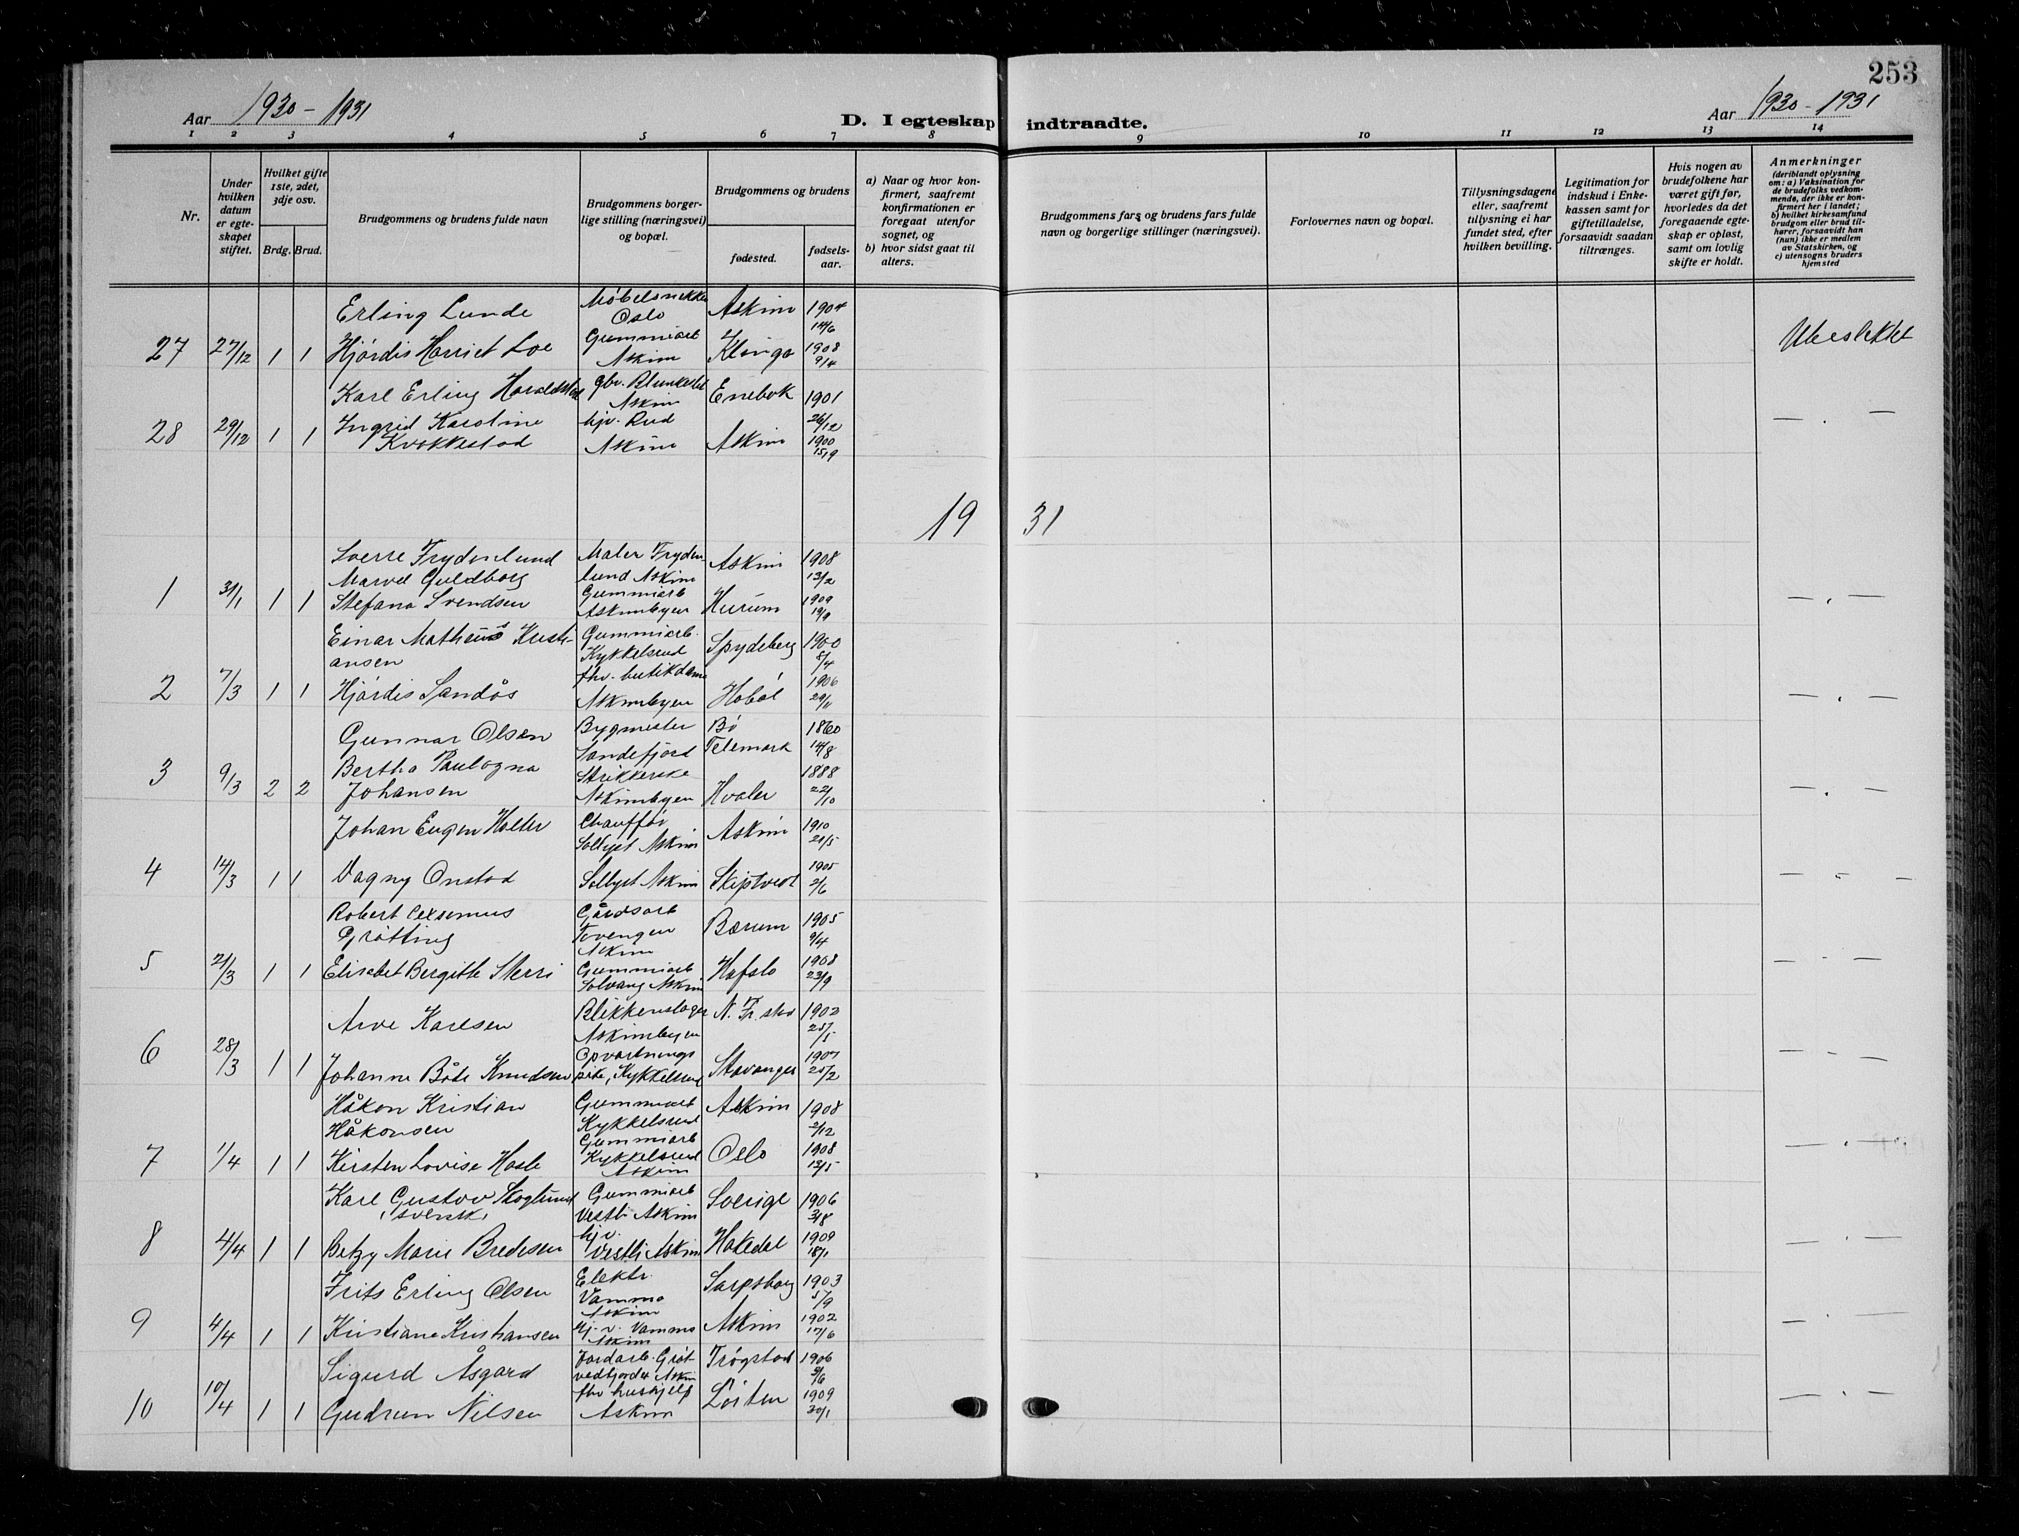 253
Aar 1930 - 1931
D. I egteskap indtraadte.
Aar 1930 - 1931
1 2 3 4 5 6 7 8 9 10 11 12 13 14
Nr.
Under hvilken datum er egteskapet stiftet.
Hvilket gifte 1ste, 2det, 3dje osv.
Brdg. Brud.
Brudgommens og brudens fulde navn
Brudgommens borgerlige stilling (næringsvei) og bopæl.
Brudgommens og brudens
fødested.
fødselsaar.
a) Naar og hvor konfirmert, saafremt konfirmationen er foregaat utenfor sognet, og
b) hvor sidst gaat til alters.
Brudgommens fars og brudens fars fulde navn og borgerlige stillinger (næringsvei).
Forlovernes navn og bopæl.
Tillysningsdagene eller, saafremt tillysning ei har fundet sted, efter hvilken bevilling.
Legitimation for indskud i Enkekassen samt for giftetilladelse, forsaavidt saadan tiltrænges.
Hvis nogen av brudefolkene har været gift før, hvorledes da det foregaaende egteskap er opløst, samt om lovlig skifte er holdt.
Anmerkninger
(deriblandt oplysning om: a) Vaksination for de brudefolks vedkommende, der ikke er konfirmert her i landet;
b) hvilket kirkesamfund brudgom eller brud tilhører, forsaavidt han (hun) ikke er medlem av Statskirken, og
c) utensogns bruders hjemsted
Erling Lunde Møbelsnekker Oslo Askim 1904 14/6
27 27/12 1 1 Hjørdis Harriet Loe Gummiarb Askim Klinga 1908 9/4 Ubeslektet
Karl Erling Haraldstad gbr. Askim Enebak 1901 26/12
28 29/12 1 1 Ingrid Karoline Kvakkestad hjv. Rud Askim Askim 1900 15/9 — . —
1931
Sverre Frydenlund Maler Frydenlund Askim Askim 1908 13/2
1 31/1 1 1 Marvel Guldborg Stefana Svendsen Gummiarb Askimbyen Hurum 1909 19/9 — . —
Einar Matheus Kristiansen Gummiarb. Kykkelsrud Spydeberg 1900 8/4
2 7/3 1 1 Hjørdis Sandås fhv. butikdame Askimbyen Hobøl 1906 29/11 — . —
Gunnar Olsen Bygmester Sandefjord Bø Telemark 1860 14/8
3 9/3 2 2 Bertha Paulogna Johansen Strikkerske Askimbyen Hvaler 1888 22/10 — . —
Johan Eugen Holter Chauffør Sollyst Askim Askim 1910 20/5
4 14/3 1 1 Dagny Onstad Sollyst Askim Skiptvedt 1905 2/6 — . —
Robert Grøtting Gårdsarb Tovengen Askim Bærum 1905 9/4
5 21/3 1 1 Elisabet Bergitte Skerri Gummiarb Solvang Askim Hafslo 1908 23/9 — . —
Arve Karlsen Blikkenslager Askimbyen N. Fr. stad 1902 25/5
6 28/3 1 1 Johanne Båte Knudsen Opvartningspike, Kykkelsrud Stavanger 1907 25/2 — . —
Håkon Kristian Håkonsen Gummiarb Kykkelsrud Askim 1908 2/12
7 1/4 1 1 Kirsten Lovise Hasle Gummiarb Kykkelsrud Askim Oslo 1908 13/5 — . —
Karl Gustav Skoglund, svensk, Gummiarb Vestli Askim Sverige 1906 3/8
8 4/4 1 1 Betzy Marie Bredesen hjv. Vestli Askim Hakedal 1909 18/1 — . —
Frits Erling Olsen Elektr. Vamma Askim Sarpsborg 1903 5/9
9 4/4 1 1 Kristiane Kristiansen hj. v. Vamma Askim Askim 1902 17/6 — . —
Sigurd Åsgard Jordarb. Grøtvedfjorder Askim Trøgstad 1906 9/6
10 10/4 1 1 Gudrun Nilsen fhv hushjelp Askim Løiten 1909 30/1 — . —